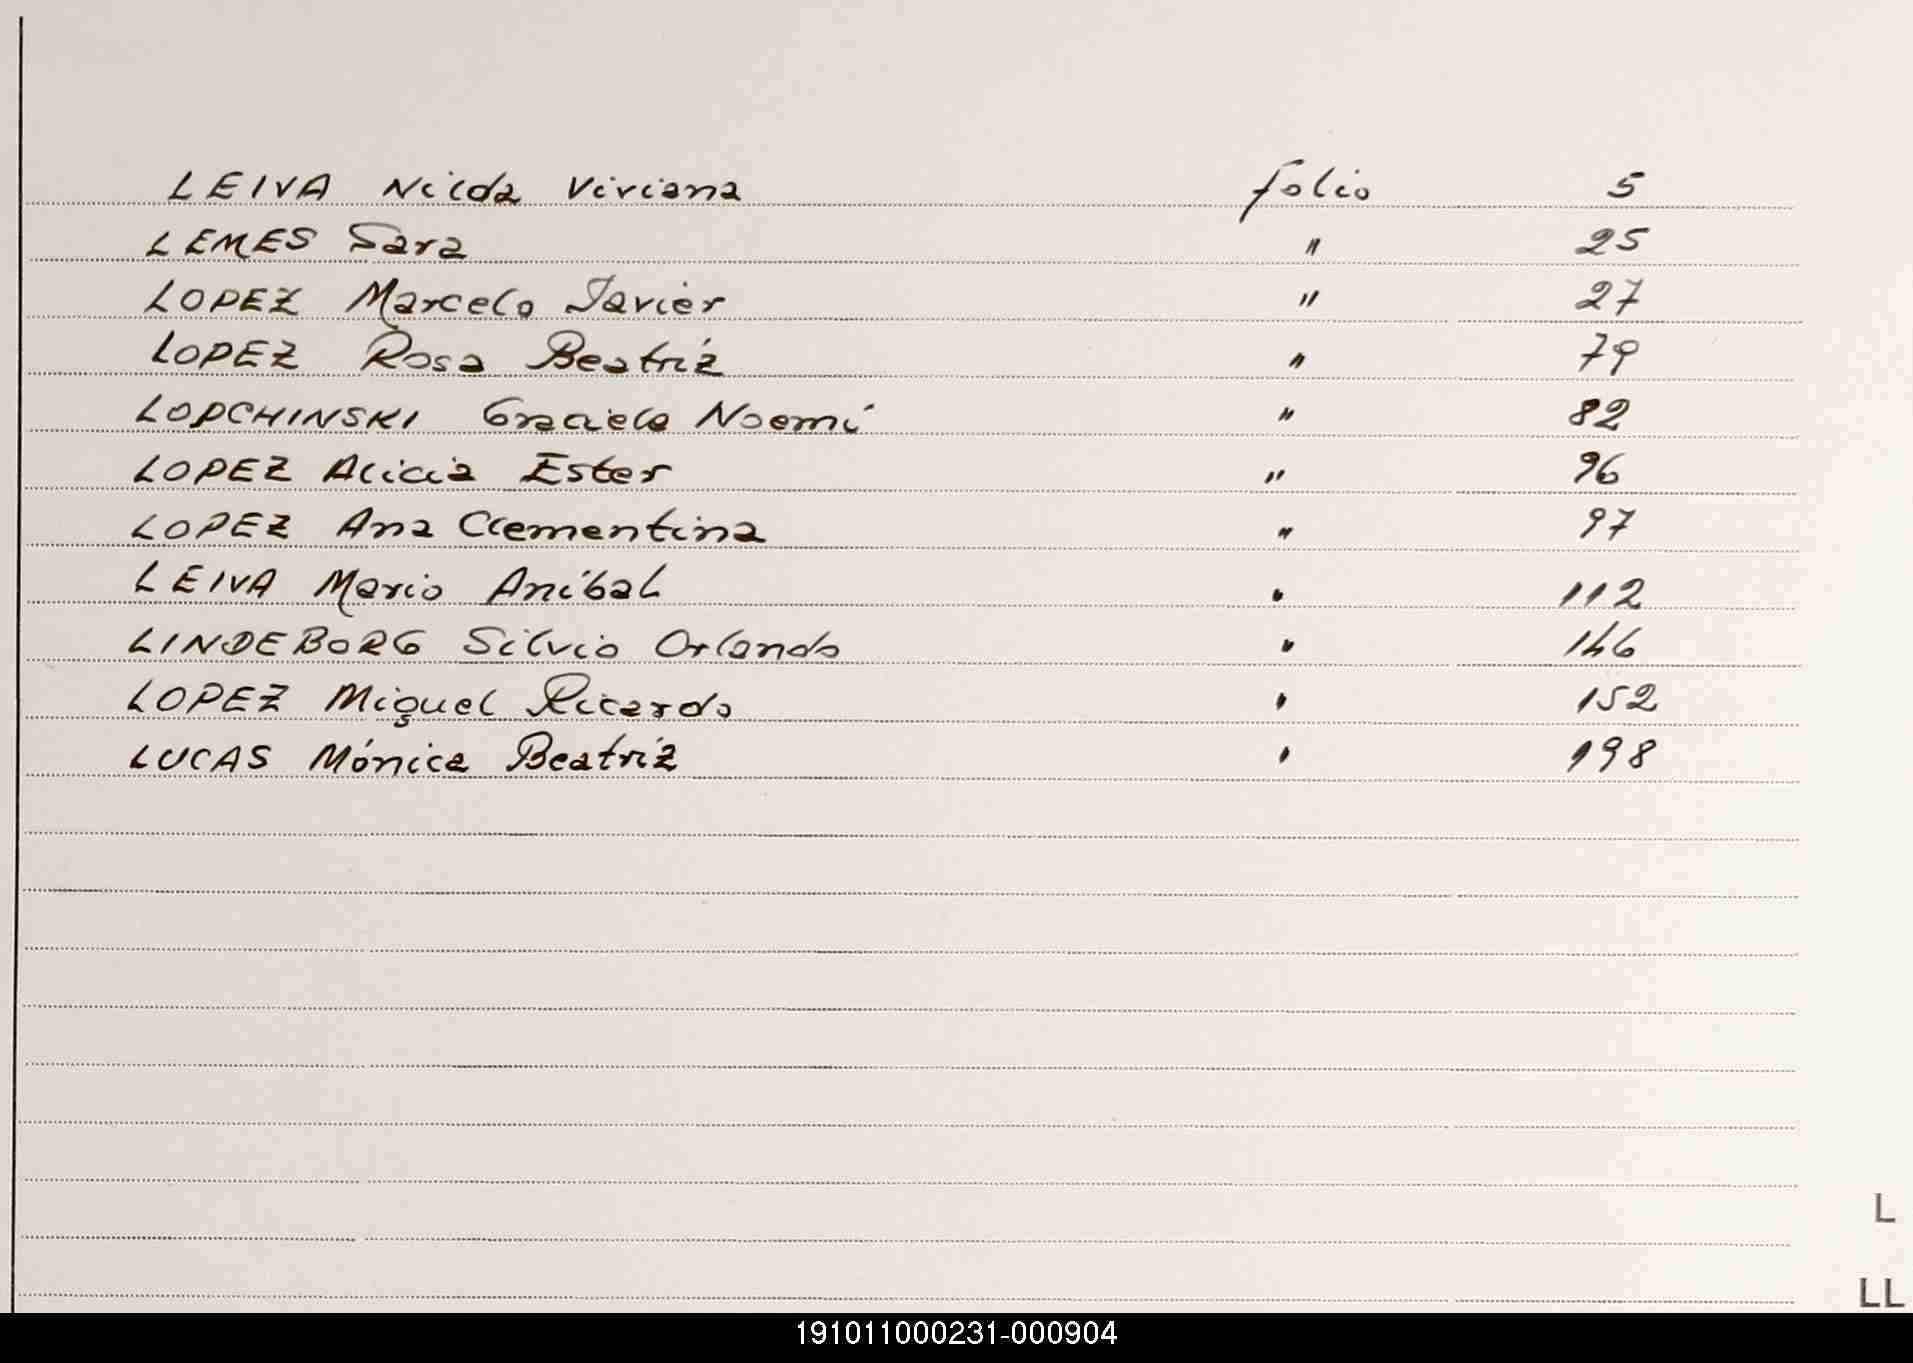 LEIVA Nilda Viviana folio 5
LEMES Sara " 25
LOPEZ Marcelo Javier " 27
LOPEZ Rosa Beatriz " 79
LOPCHINSKI Graciela Noemí " 82
LOPEZ Alicia Ester " 96
LOPEZ Ana Clementina " 97
LEIVA Mario Aníbal " 112
LINDEBORG Silvio Orlando " 146
LOPEZ Miguel Ricardo " 152
LUCAS Mónica Beatriz " 198
L
LL
191011000231-000904